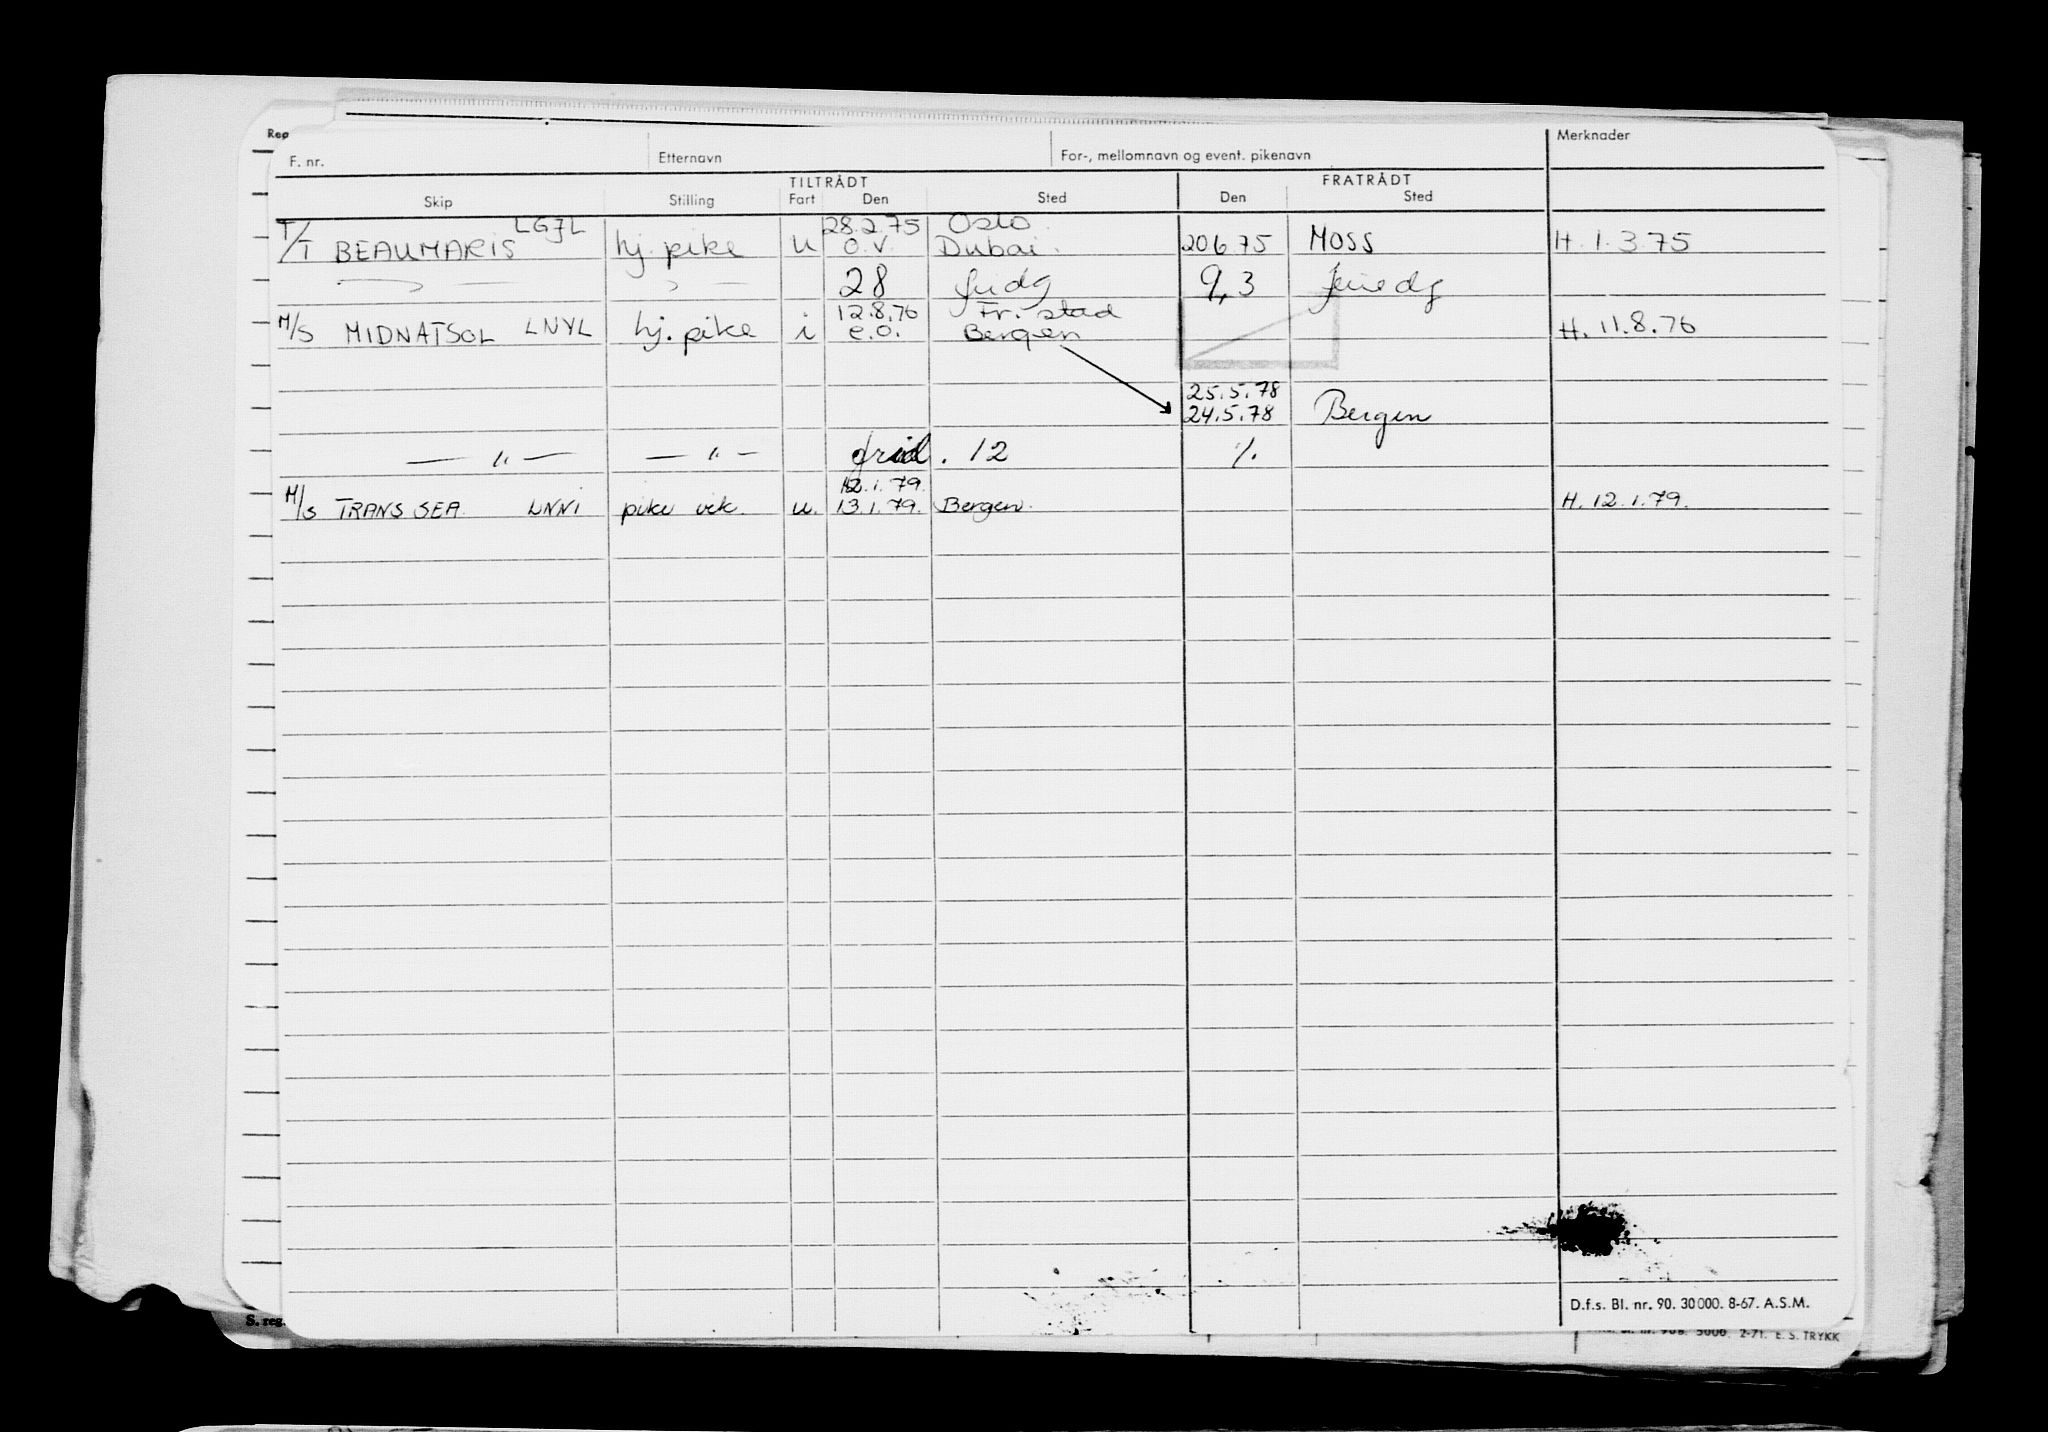 Rep
F. nr. Etternavn For-, mellomnavn og event. pikenavn Merknader
TILTRÅDT FRATRÅDT
Skip Stilling Fart Den Sted Den Sted
LGJL 28.2.75 Oslo
T/T BEAUMARIS hj. pike u o.v. Dubai. 20.6.75 MOSS H. 1.3.75
28 9,3
12.8.76 Fr. stad
M/S MIDNATSOL LNYL hj. pike i e.o. Bergen H. 11.8.76
25.5.78
24.5.78 Bergen
— " — — " — frid. 12 %
12.1.79.
M/S TRANS SEA. LNNI pike vik. u. 13.1.79. Bergen. H. 12.1.79.
D.f.s. Bl. nr. 90. 30 000. 8-67. A.S.M.
S. reg.
5000. 2-71. E. S. TRYKK